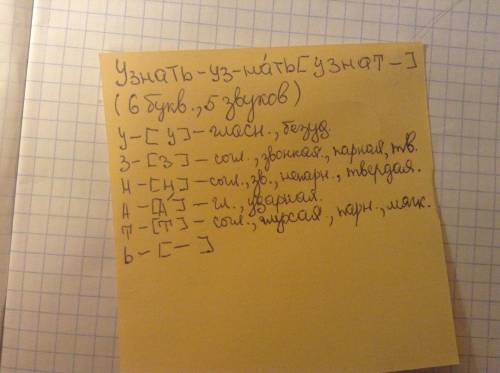 Узнать-уз-на́ть[узнат-]
(6 букв., 5 звуков)
у-[у]-гласн., безуд.
З-[З]-согл., звонкая., парная, тв.
Н-[Н]-согл., зв., непарн., твердая.
А-[А́]-гл., ударная.
Т-[Т]-согл., глухая, парн., мягк.
ь-[-]